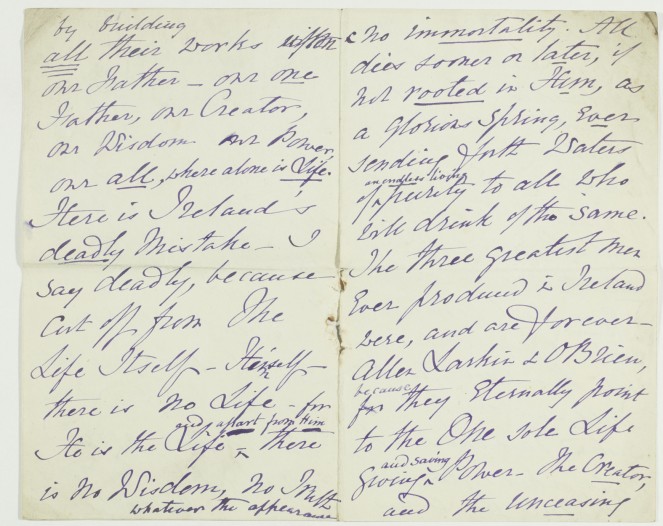 by building
all their works upon
our Father – our one
Father, our Creator,
our Wisdom our Power,
our all, where alone is Life.
Here is Ireland's
deadly mistake – I
say deadly, because
cut off from The
Life Itself – Himself –
there is no Life – for
and apart from Him
He is the Life – there
is no Wisdom, no Truth
whatever the appearance
& no immortality. All
dies sooner or later, if
not rooted in Him, as
a Glorious Spring, Ever
sending forth Waters
an endless living
of purity to all who
will drink of the same.
The three greatest men
Ever produced in Ireland
were, and are forever –
Allen Larkin & OBrien,
because
for they Eternally point
to the One sole Life
and saving
Giving Power – The Creator,
and the unceasing